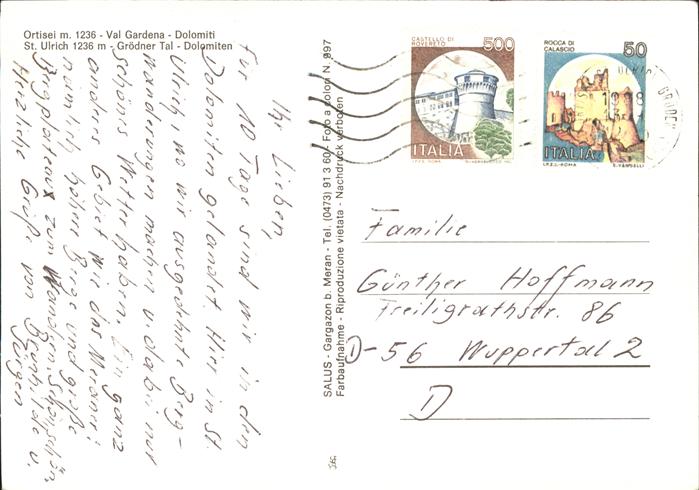 Ortisei m. 1236 - Val Gardena - Dolomiti
St. Ulrich 1236 m - Grödner Tal - Dolomiten
Ihr Lieben,
für 10 Tage sind wir in den
Dolomiten gelandet. Hier in St.
Ulrich, wo wir ausgedehnte Berg-
wanderungen machen u. dabei nur
schönes Wetter haben. Ein ganz
anderes Gebiet wie das Meraner:
nämlich höhere Berge und große
Bergplateaux zum Wandern. Schön, schön,
Herzliche Grüße von Brunhilde u.
Jürgen
SALUS - Gargazon b. Meran - Tel. (0473) 91 3 60 - Foto a colori N. 997
Farbaufnahme - Riproduzione vietata - Nachdruck verboten
CASTELLO DI
ROVERETO
500
ITALIA
I.P.Z.S. - ROMA
ROCCA DI
CALASCIO
50
ITALIA
I.P.Z.S. - ROMA E. VANGELLI
Familie
Günther Hoffmann
Freiligrathstr. 86
D-56 Wuppertal 2
D